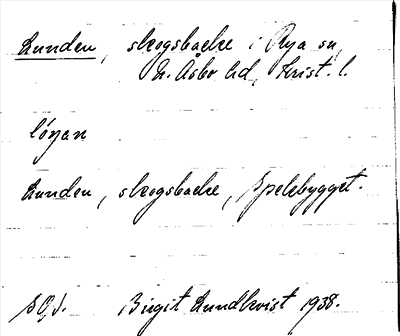 Lunden, skogsbacke i Rya sn,
N. Åsbo hd, Krist. l.
Lunden, skogsbacke, Spelebygget.
Birgit Lundkvist 1938.